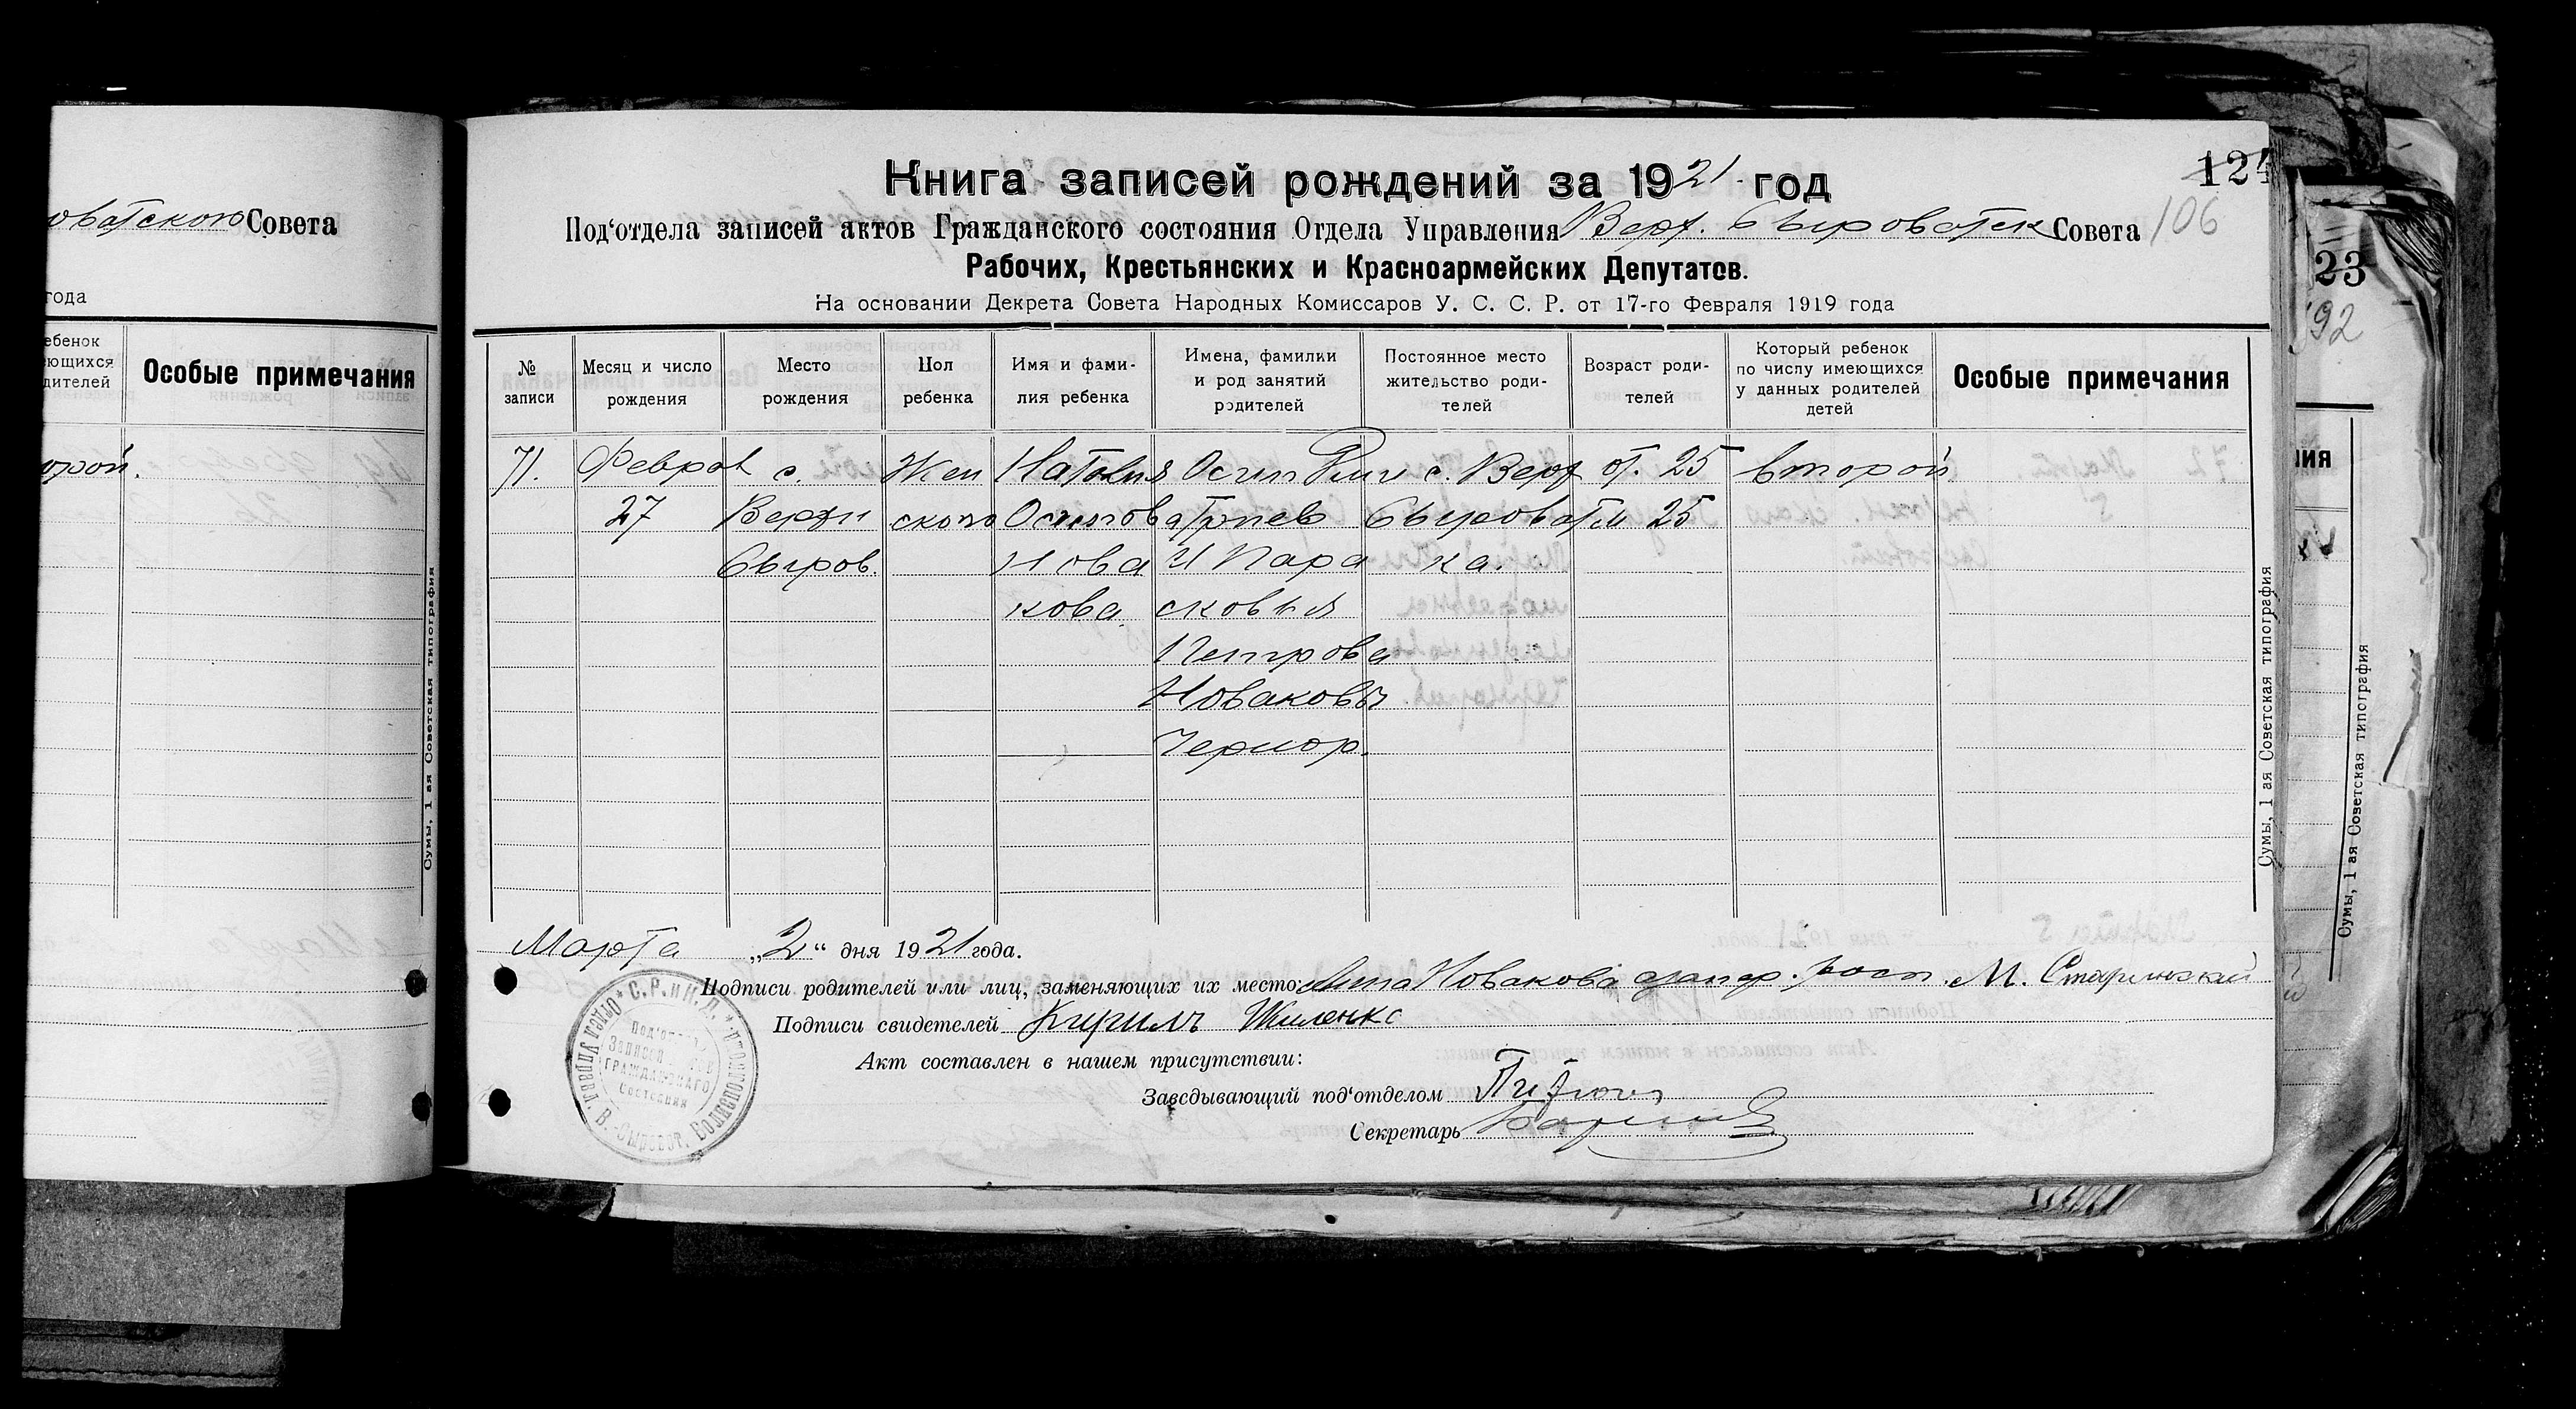 оватского Совета
года
ебенок
ющихся
дителей
Особые примечания
орой.
Сумы, 1 ая Советская типография
Книга записей рождений за 1921 год
124
Под‘отдела записей актов Гражданского состояния Отдела Управления Верх. Сыроватск Совета
106
Рабочих, Крестьянских и Красноармейских Депутатов.
На основании Декрета Совета Народных Комиссаров У. С. С. Р. от 17-го Февраля 1919 года
№ записи
Месяц и число рождения
Место рождения
Пол ребенка
Имя и фами-
лия ребенка
Имена, фамилии
и род занятий
родителей
Постоянное место
жительство роди-
телей
Возраст роди-
телей
Который ребенок
по числу имеющихся
у данных родителей
детей
Особые примечания
71. Феврал с. Жен Наталия Осип с. Верх от. 25 второй
27 Верхн ского Осипова Сыроват м 25
Сыров. Нова И Пара ка.
кова. сковья
Петрова
Новаковы
Чернор.
Сумы, 1 ая Советская типография
Марта „2“ дня 1921 года.
Подписи родителей или лиц, заменяющих их место: Новакова М.
Подписи свидетелей Кирилъ Жиленко
Акт составлен в нашем присутствии:
Заведывающий под‘отделом
Секретарь
Отдел Управл. В.-Сыроват. Волисполкома С.Р.и К.Д.
Под‘отдел
Записей Актов
Гражданскаго
Состояния
23
92
ия
Сумы, 1 ая Советская типография